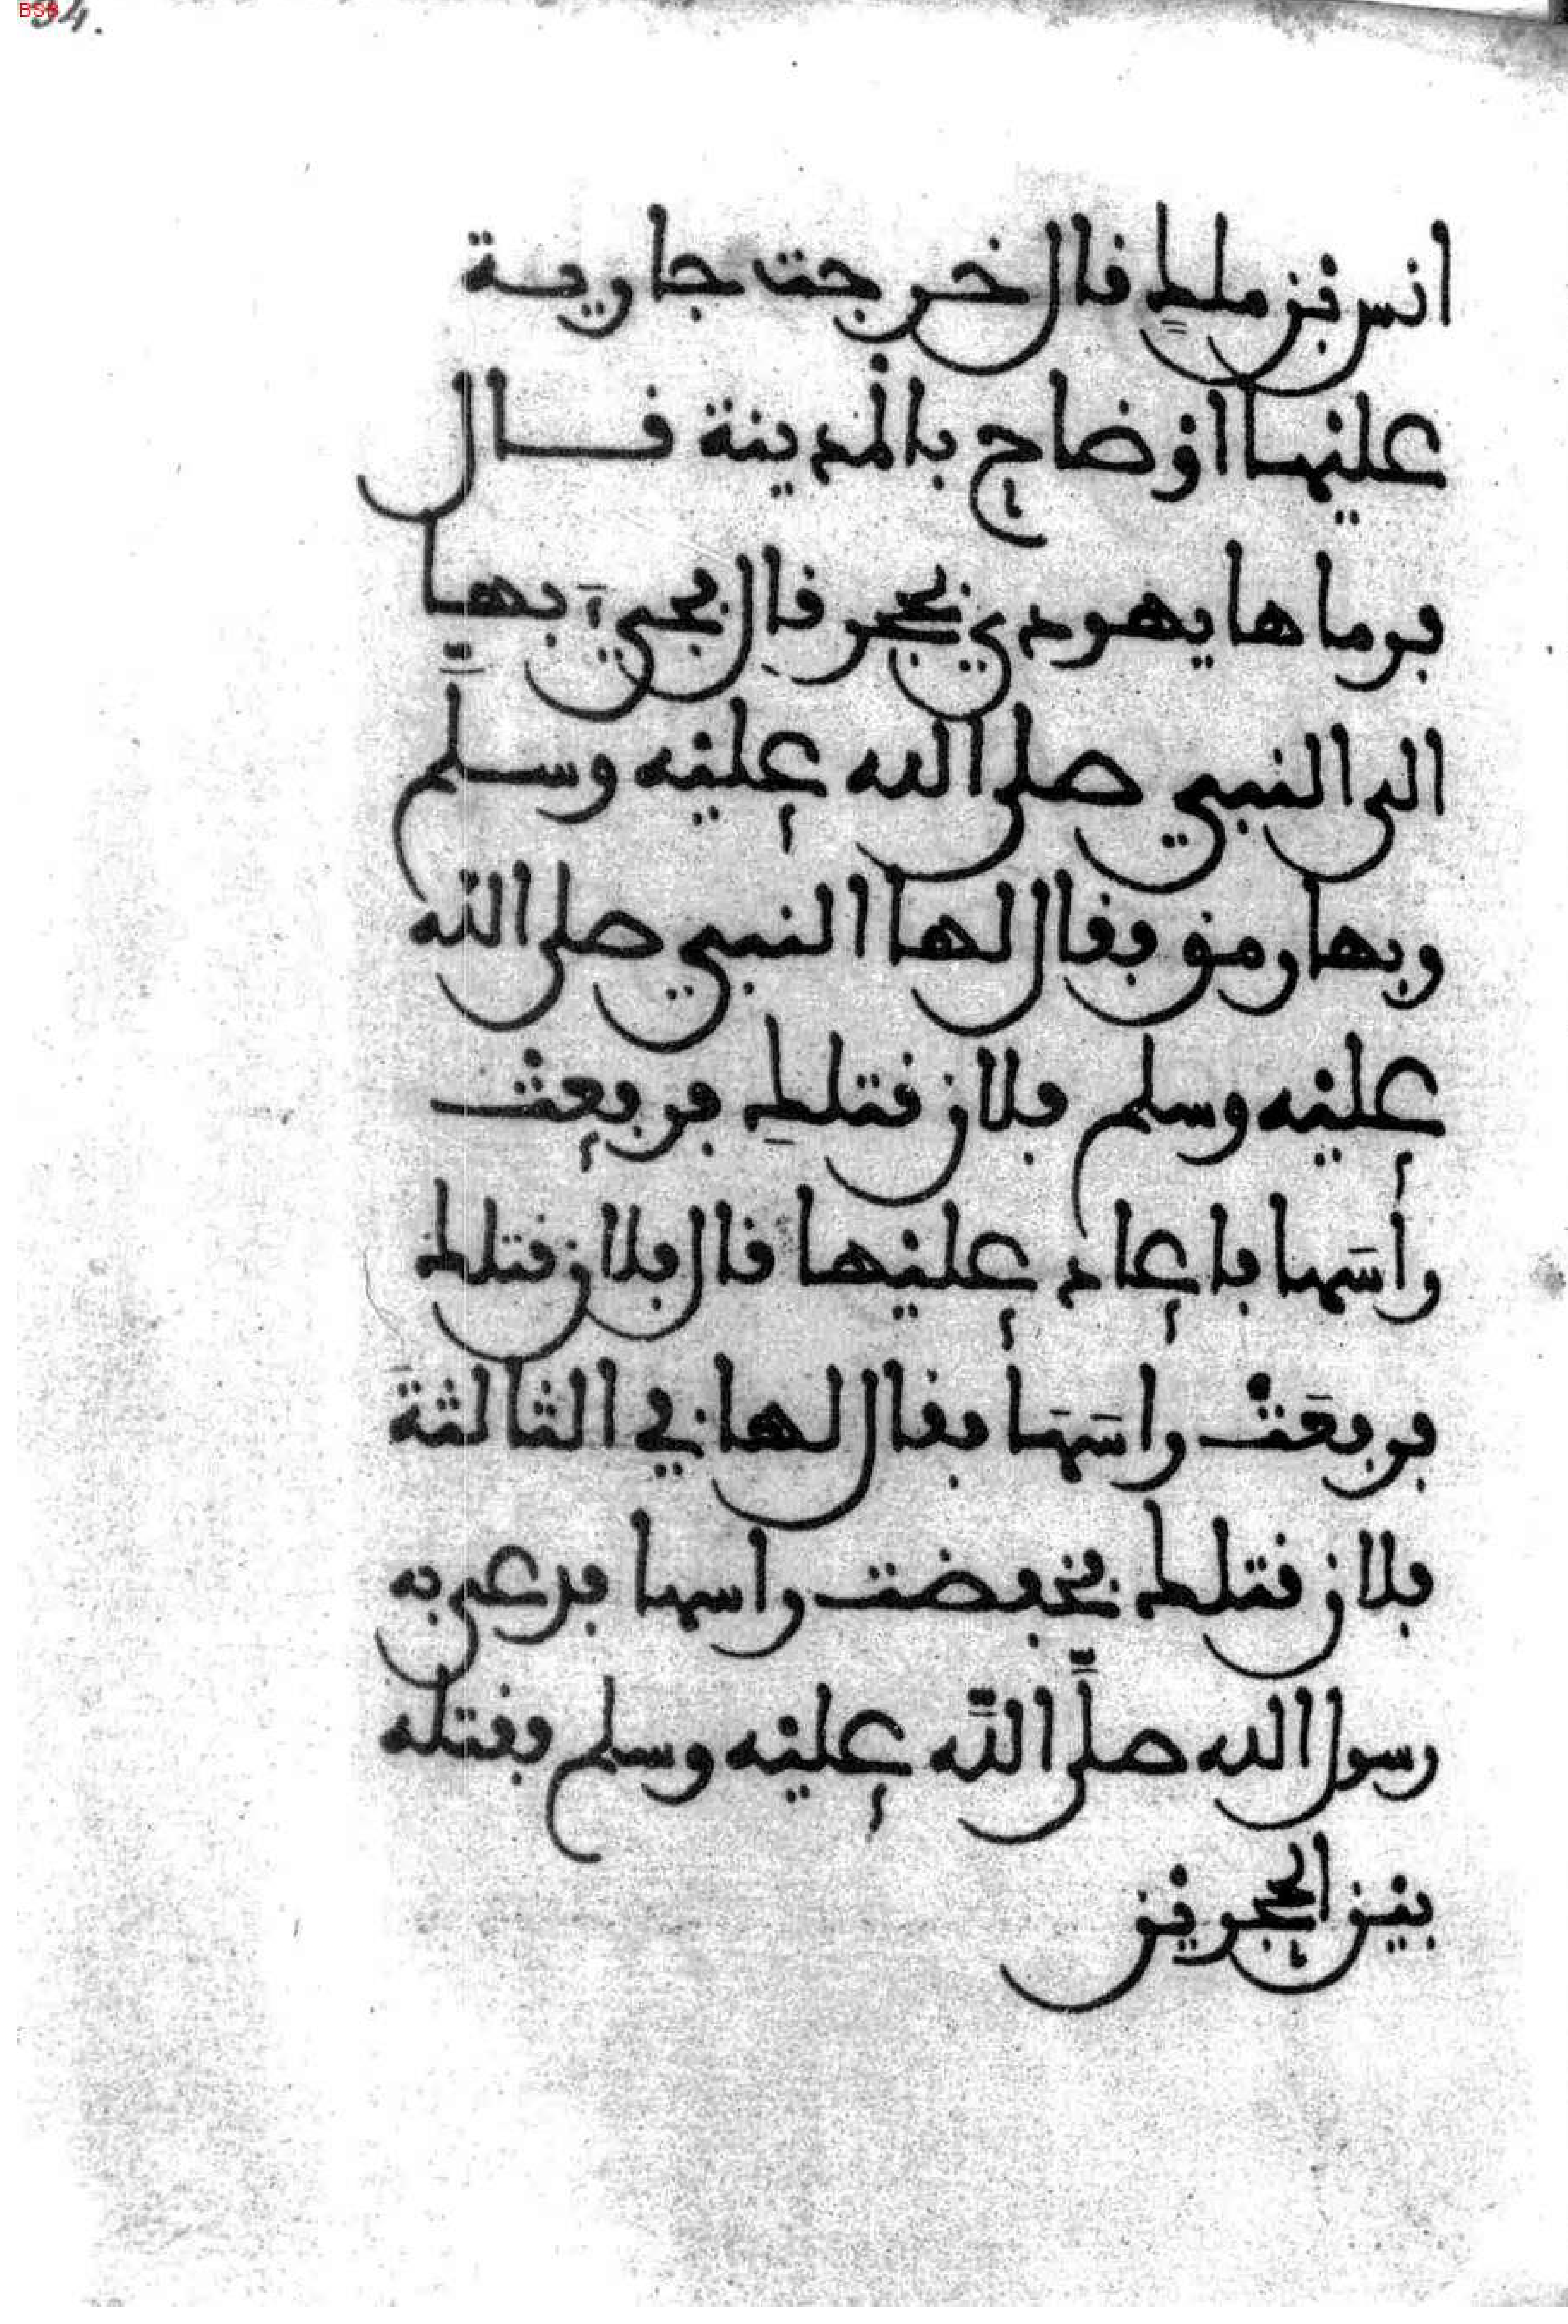 BSB
54.
انس بن ملك قال خرجت جارية
عليها اوضاح بالمدينة قال
فرماها يهودي بحجر قال فجيء بها
الى النبي صلى الله عليه وسلم
وبها رمق فقال لها النبي صلى الله
عليه وسلم فلان قتلك فرفعت
راسها فاعاد عليها قال فلان قتلك
فرفعت راسها فقال لها في الثالثة
فلان قتلك فخفضت راسها فدعى به
رسول الله صلى الله عليه وسلم فقتله
بين الحجرين